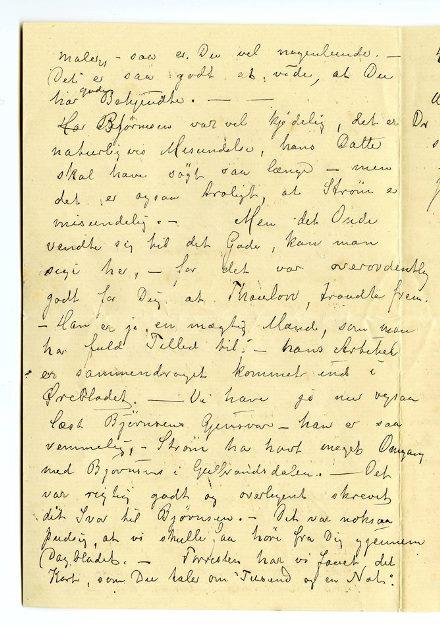 maler, – saa er Du vel nogenlunde. –
Det er saa godt at vide, at Du
har gode Bekjendte. – –
Har Bjørnson var vel kjedelig, det er
naturligvis Misundelse, hans Datter
skal have søgt saa længe – men
det er ogsaa troligt, at Strøm er
misundelig. – Men det Onde
vendte sig til det Gode, kan man
sige her, – for det var overordentlig
godt for Dig, at Thaulow, traadte frem.
– Han er jo en mægtig Mand, som man
har fuld Tillid til. – hans Artikel
er sammendraget kommet ind i
Ørebladet. – Vi have jo nu ogsaa
læst Bjørnsons Gjensvar – han er saa
vemmelig, – Strøm har havt meget Omgang
med Bjørnsons i Gulbrandsdalen. – Det
var rigtig godt og overlegent skrevet
dit Svar til Bjørnson. – Det var noksaa
pudsig, at vi skulle faa høre fra Dig gjennem
Dagbladet. – Forresten har vi faaet det
Kort, som Du taler om "Tusend og en Nat".
Dr